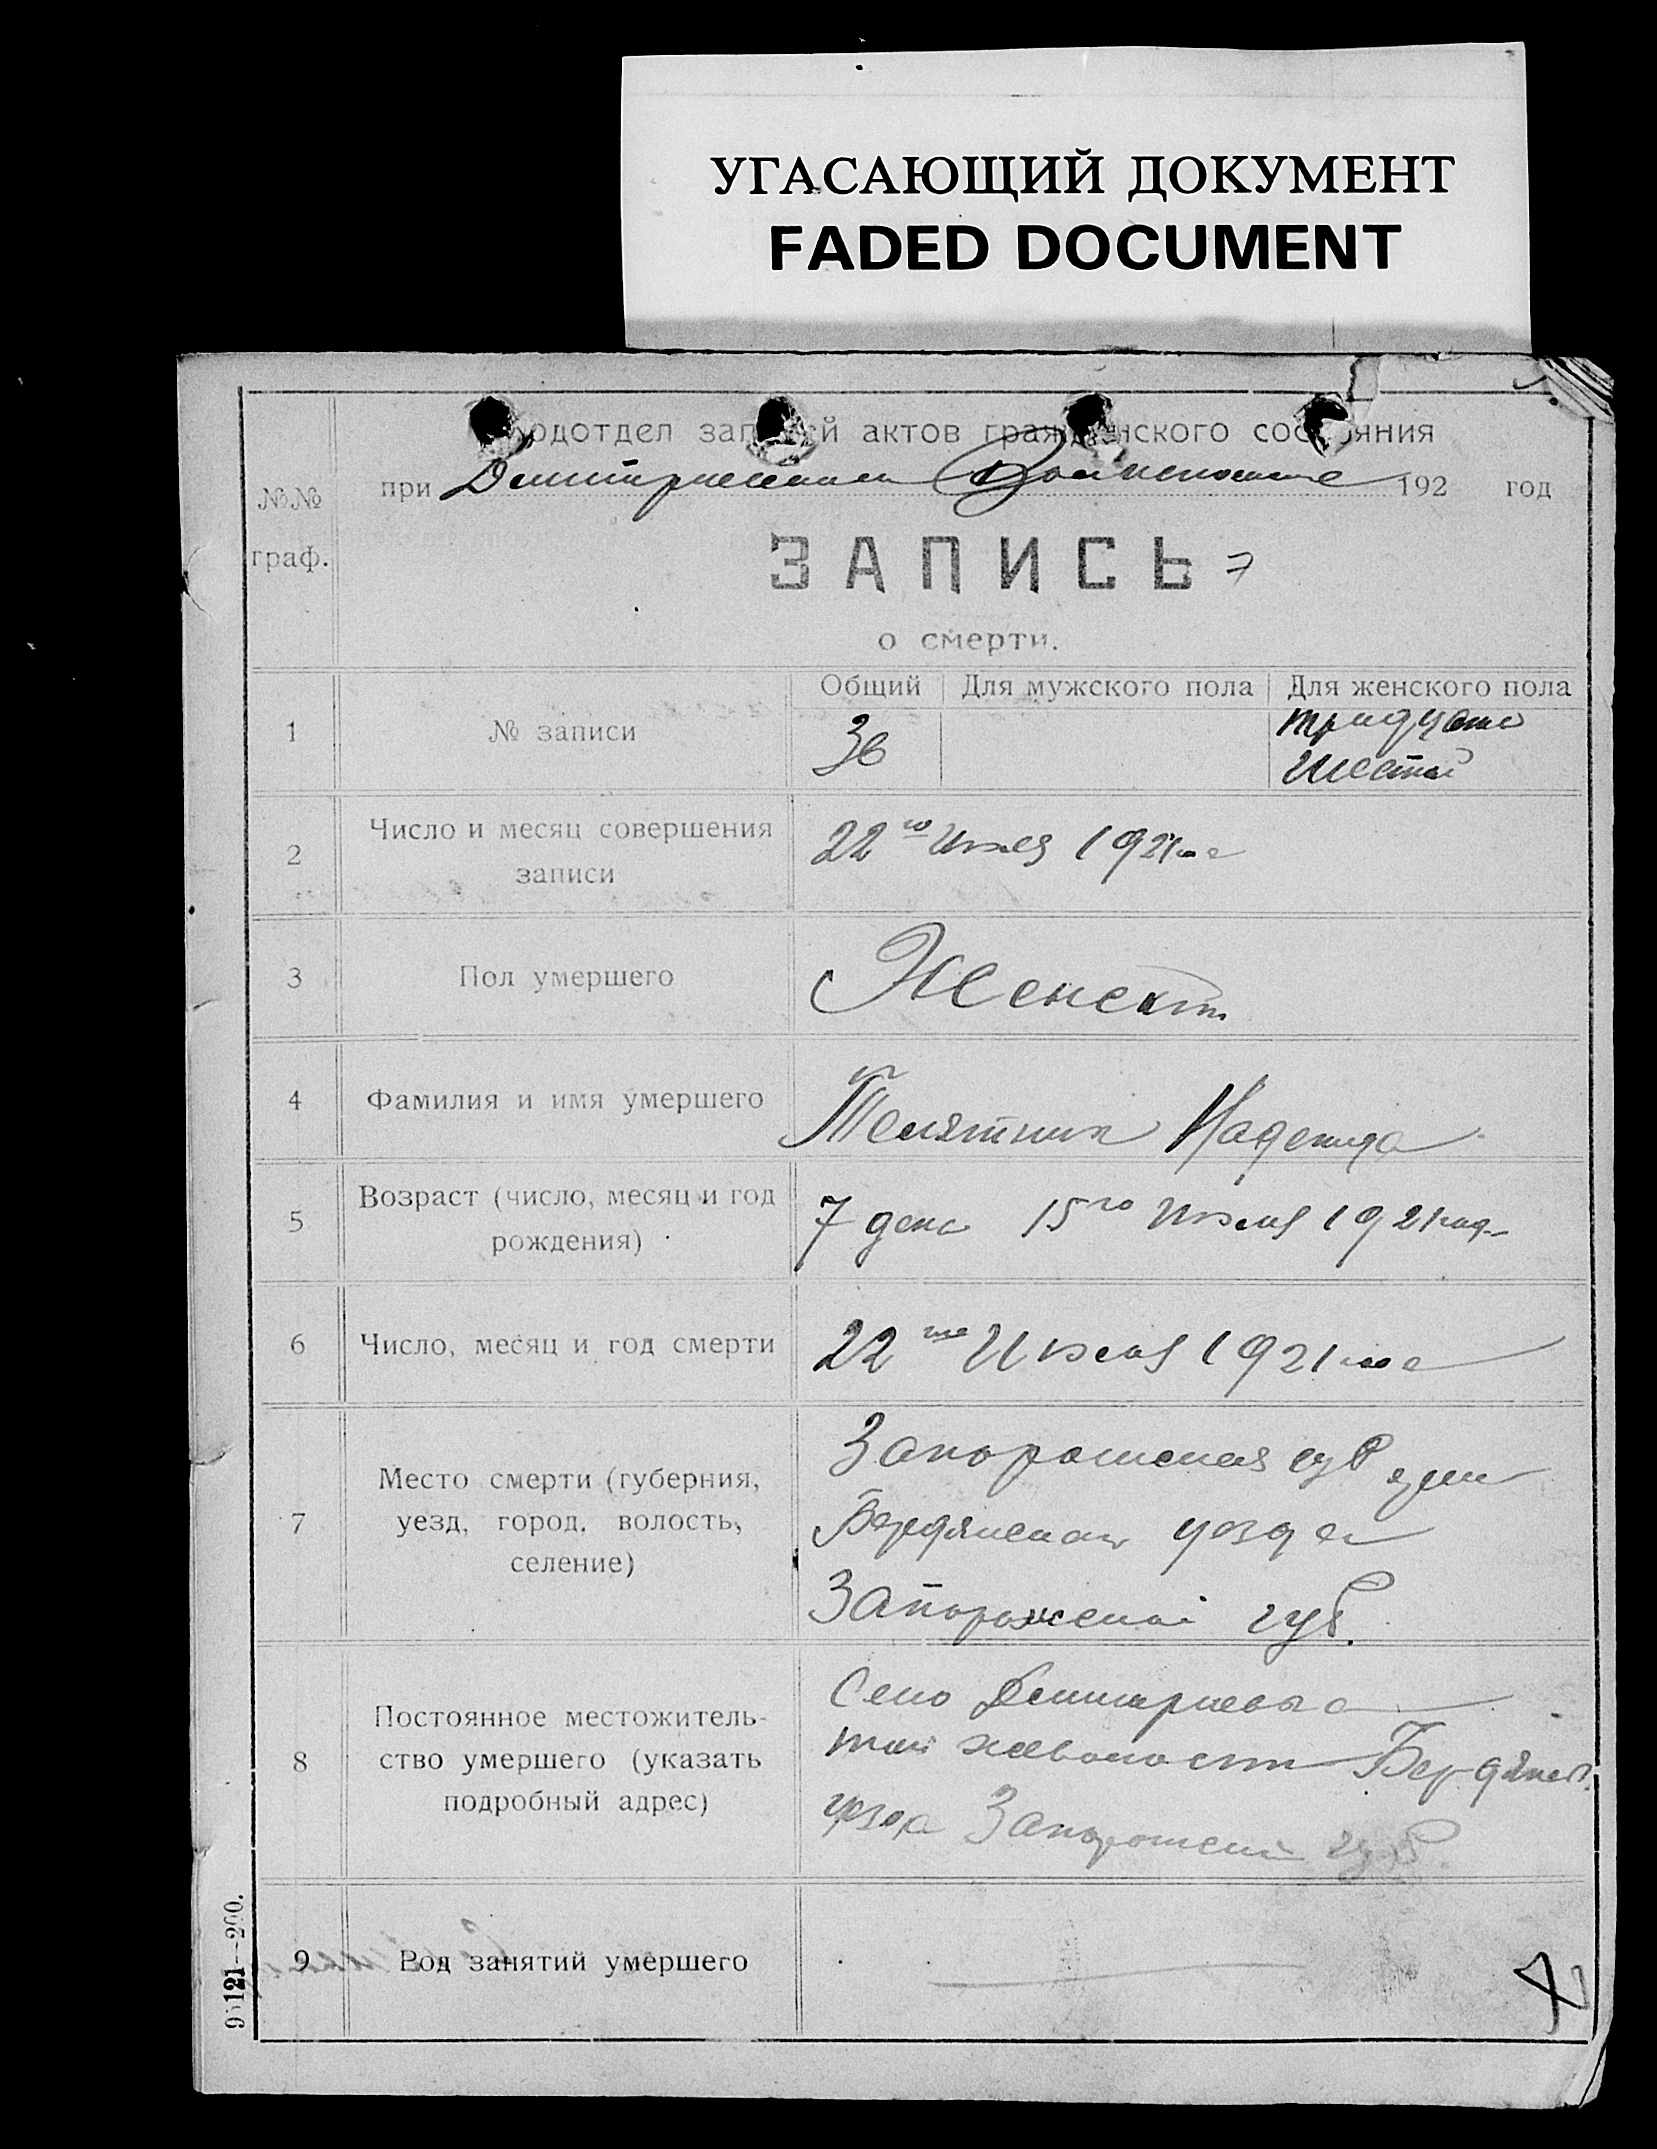 УГАСАЮЩИЙ ДОКУМЕНТ
FADED DOCUMENT
Подотдел записей актов гражданского состояния
№№ граф.
при 192 год
ЗАПИСЬ 7
о смерти.
Общий Для мужского пола Для женского пола
1 № записи 36 тридцать
шестой
2 Число и месяц совершения
записи
22го Июля 1921го
3 Пол умершего Женск
4 Фамилия и имя умершего Телятник Надежда
5 Возраст (число, месяц и год
рождения)
7 день 15го Июля 1921 год
6 Число, месяц и год смерти 22го Июля 1921го
7 Место смерти (губерния,
уезд, город, волость,
селение)
Запорошская губ
Бердянскаго уезда
Запорожской губ.
8 Постоянное местожитель-
ство умершего (указать
подробный адрес)
Село
той же волости Бердянск.
уезда Запорошской губ.
9 Род занятий умершего